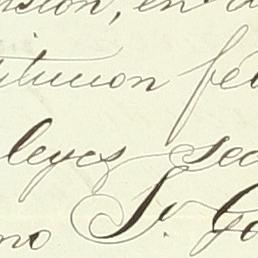 rsion, en
titucion fe
leyes sec
no S. Go